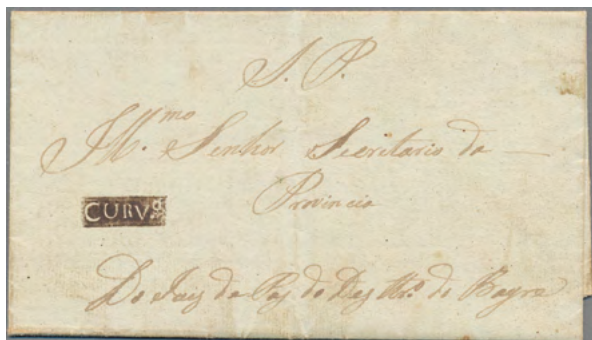 S. P.
Ill.mo Senhor Secretario da
Provincia
CURVº
Do Juiz de Paz do Destrº. do Bagre